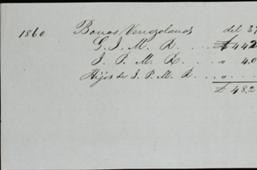 1860 Bonos Venezolanos del 37
G. I. M. R. . . . . £ 442
I. P. M. R. . . . . " 40
Hijos de I. P. M. R. . . "
£ 482